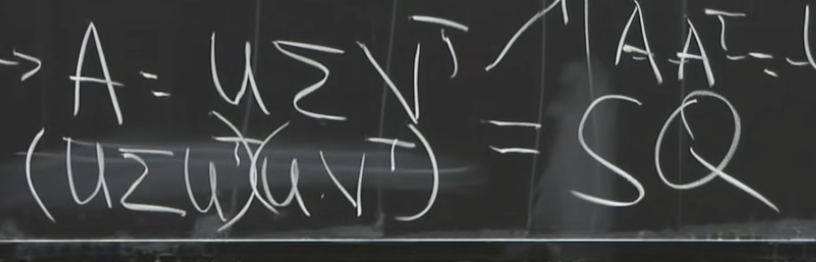 → A = U Σ Vᵀ A Aᵀ =
(U Σ Uᵀ)(U · Vᵀ) = S Q